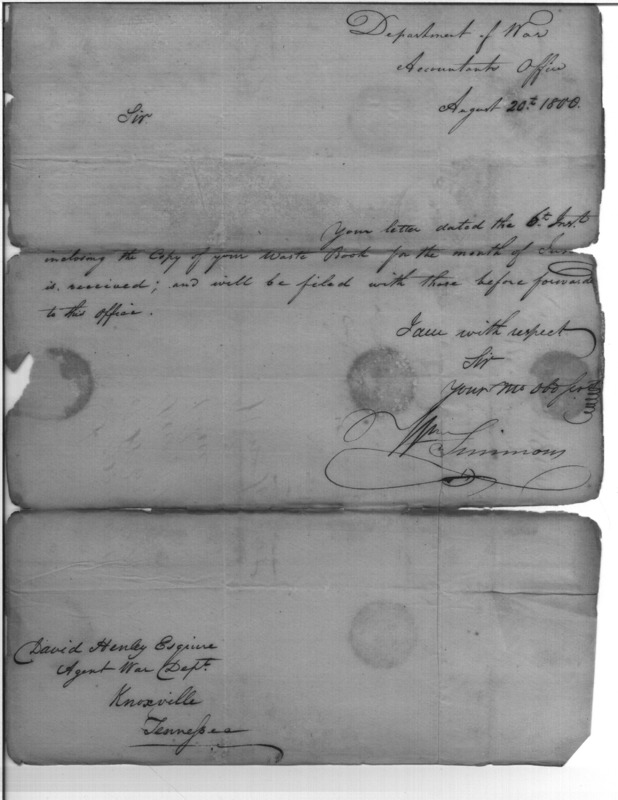 Department of War
Accountants Office
August 20th. 1800.
Sir
Your letter dated the 6th. Inst.
inclosing the Copy of your Waste Book for the month of June
is received; and will be filed with those before forwarde
to this office.
I am with respect
Sir
Your Mo Ob Servt
Wm Simmons
David Henley Esquire
Agent War Dept.
Knoxville
Tennessee